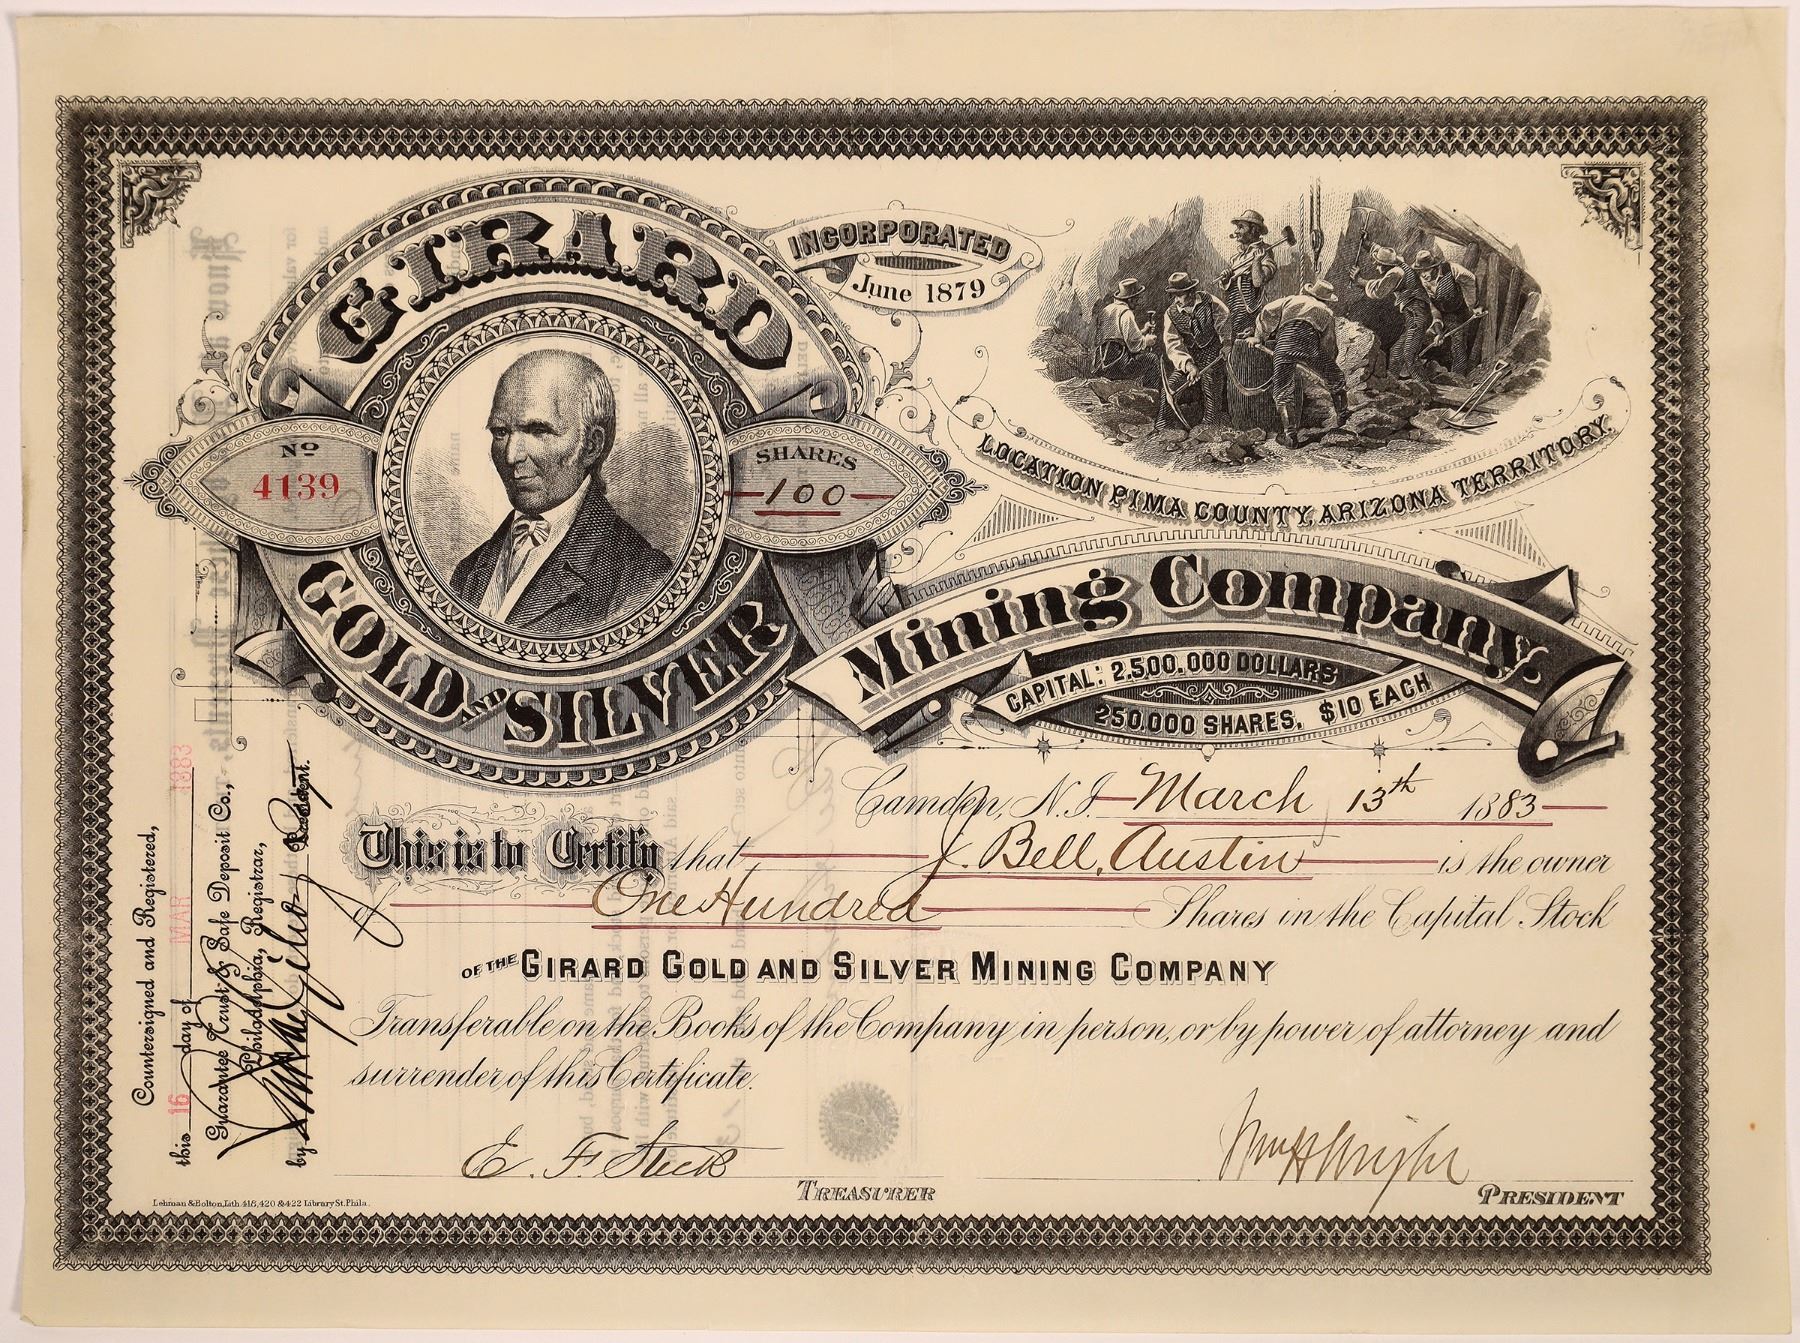 GIRARD
GOLD AND SILVER
Mining Company.
INCORPORATED
June 1879
No
4139
SHARES
100
LOCATION PIMA COUNTY, ARIZONA TERRITORY.
CAPITAL: 2,500,000 DOLLARS
250,000 SHARES, $10 EACH
Camden, N.J. March 13th 1883
This is to Certify that J. Bell, Austin is the owner
of One Hundred Shares in the Capital Stock
OF THE GIRARD GOLD AND SILVER MINING COMPANY
Transferable on the Books of the Company in person, or by power of attorney and
surrender of this Certificate.
E. F. Steck
TREASURER
Wm H Wright
PRESIDENT
Countersigned and Registered,
this 16 day of MAR 1883
Guarantee Trust & Safe Deposit Co.,
Philadelphia, Registrar,
by President.
Lehman & Bolton, Lith. 418, 420 & 422 Library St. Phila.